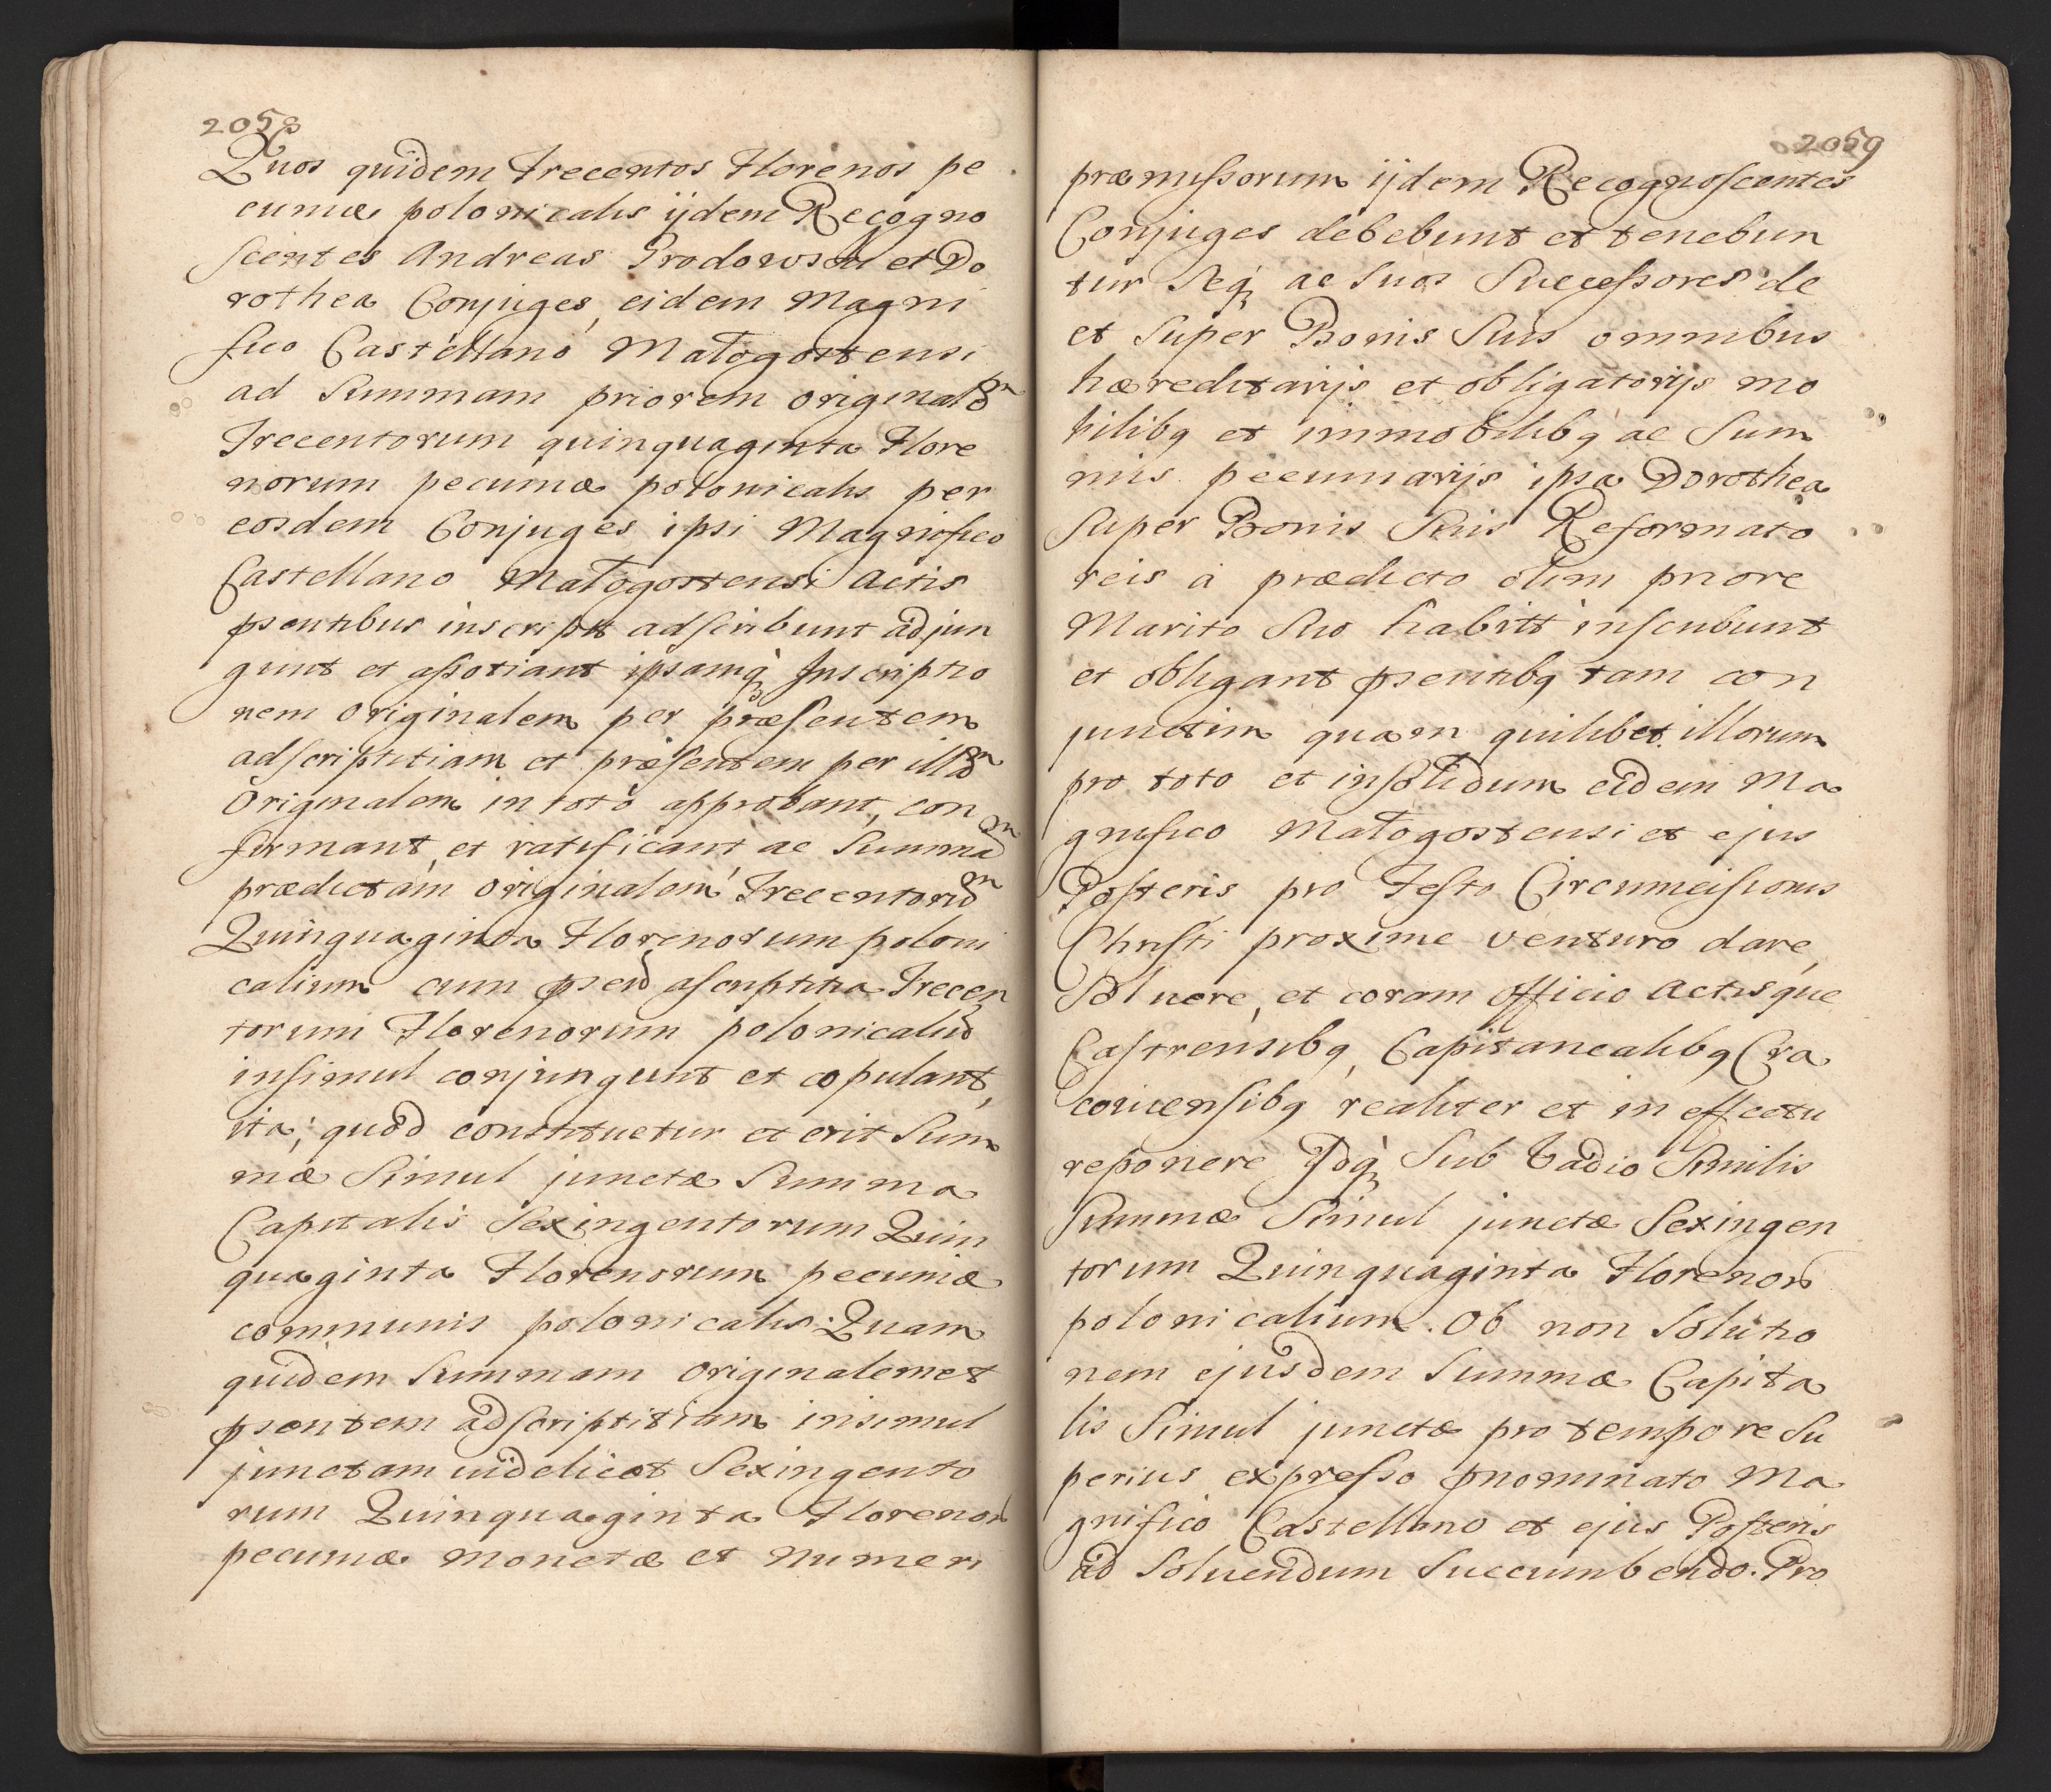 2058
Quos quidem Trecentos Florenos pe
cuniæ polonicalis ijdem Recogno
scentes Andreas et Do
rothea Conjuges, eidem Magni
fico Castellano Małogostensi
ad Summam priorem originalem
Trecentorum quinquaginta Flore
norum pecuniæ polonicalis per
eosdem Conjuges ipsi Magnifico
Castellano Małogostensi Actis
pñtibus inscript adscribunt adjun
gunt et assotiant ipsamq̀ Inscriptio
nem originalem per præsentem
adscriptitiam et præsentem per illam
Originalem in toto approbant, con
firmant, et ratificant ac Summam
prædictam originalem Trecentorum
Quinquaginta Florenorum poloni
calium cum ascriptitia Trecen
torum Florenorum polonicaliu
insimul conjungunt et copulant,
ita; quod constituetur et erit Sum
mæ Simul junctæ Summa
Capitalis Sexingentorum Quin
quaginta Florenorum pecuniæ
communis polonicalis. Quam
quidem Summam originalem et
psentem adscriptitiam insimul
junctam uidelicet Sexingento
rum Quinquaginta Florenor
pecuniæ monetæ et numeri
2059
præmissorum ijdem Recognoscentes
Conjuges debebunt et tenebun
tur Seq̀ ac Suos Successores de
et Super Bonis Suis omnibus
hæreditarijs et obligatorijs mo
bilibq et immobilibq ac Sum
mis pecuniarijs ipsa Dorothea
Super Bonis Suis Reformato
reis à prædicto olim priore
Marito Suo habitt inscribunt
et obligant psentibq tam con
junctim quam quilibet illorum
pro toto et insolidum eidem Ma
gnifico Małogostensi et ejus
Posteris pro Festo Circumcisionis
Christi proxime venturo dare,
Soluere, et coram Officio Actisque
Castrensibq, Capitanealibq Cra
couiensibq realiter et in effectu
reponere Idq̀ Sub Vadio Similis
Summæ Simul junctæ Sexingen
torum Quinquaginta Florenor
polonicalium. Ob non Solutio
nem ejusdem Summæ Capita
lis Simul junctæ pro tempore Su
perius expresso pnominato Ma
gnifico Castellano et ejus Posteris
ad Soluendum Succumbendo. Pro